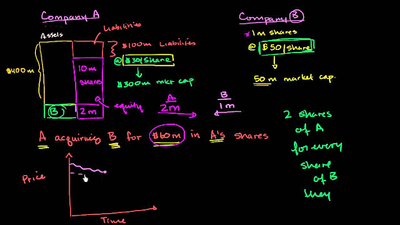 Company A
Assets
Liabilities
$100m liabilities
$400m
10m
shares
@ $30/share
$300m mkt cap
equity
(B)
2m
A
2m
B
1m
Company B
1m shares
@ $50/share
50m market cap.
A acquiring B for $60m in A's shares
2 shares
of A
for every
share
of B
they
Price
Time